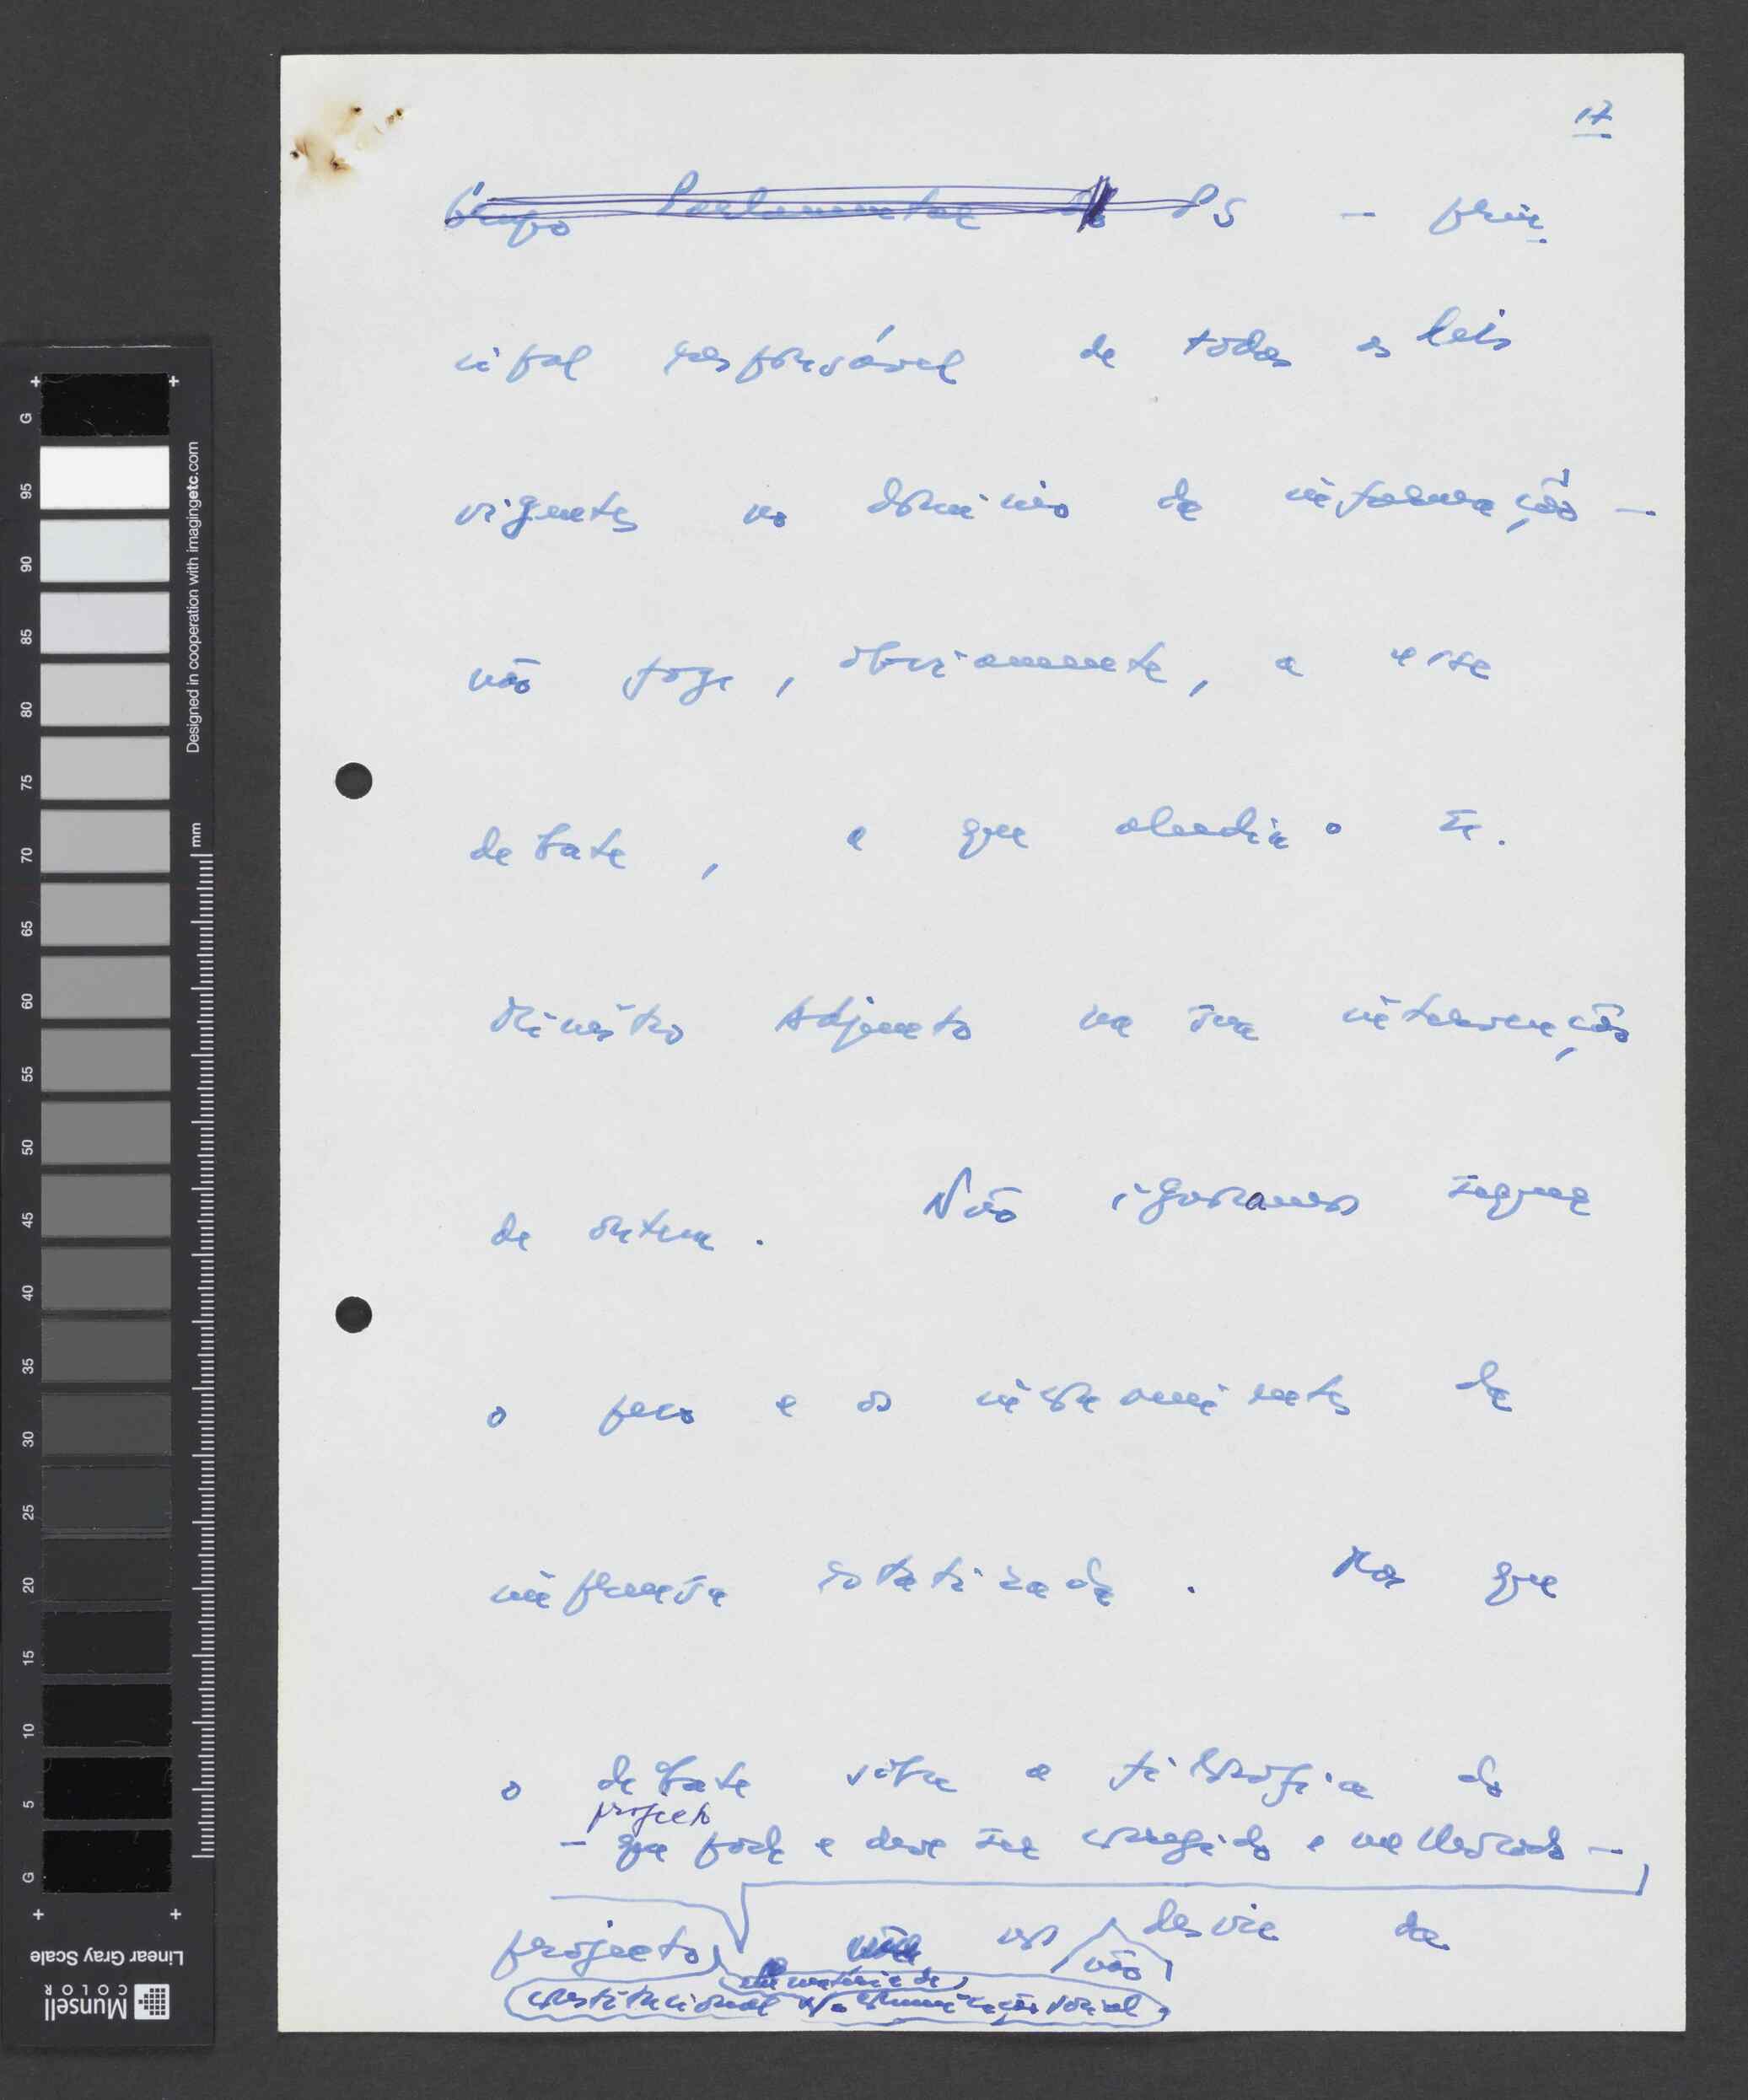 17
Grupo Parlamentar do PS — prin
cipal responsável de todas as leis
vigentes no domínio da informação —
não foge, obviamente, a esse
debate, a que aludiu o Sr.
Ministro Adjunto na sua intervenção
de ontem. Não ignoramos sequer
o peso e os inconvenientes da
imprensa estatizada. Mas que
o debate sobre a filosofia do
projecto
— que pode e deve ser corrigido e melhorado —
projecto, nos não desvie da
em matéria de
constitucional comunicação social,
G 95 90 85 80 75 70 65 60 55 50 45 40 35 30 25 20 15 10 5 G
mm
Designed in cooperation with imagingetc.com
Linear Gray Scale
Munsell
COLOR